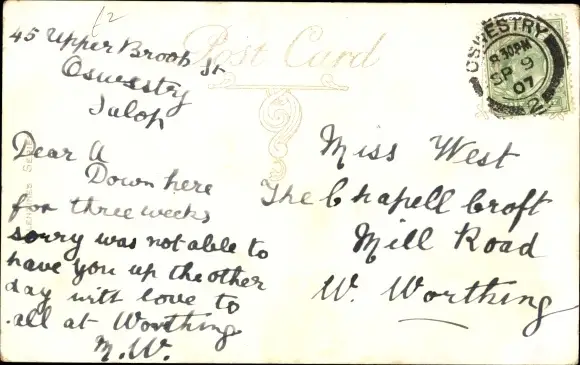 45 Upper Brook St
Oswestry
Salop
Dear A
Down here
for three weeks
sorry was not able to
have you up the other
day with love to
all at Worthing
M.W.
Post Card
OSWESTRY
8.30PM
SP 9
07
2
Miss West
The Chapell Croft
Mill Road
W. Worthing